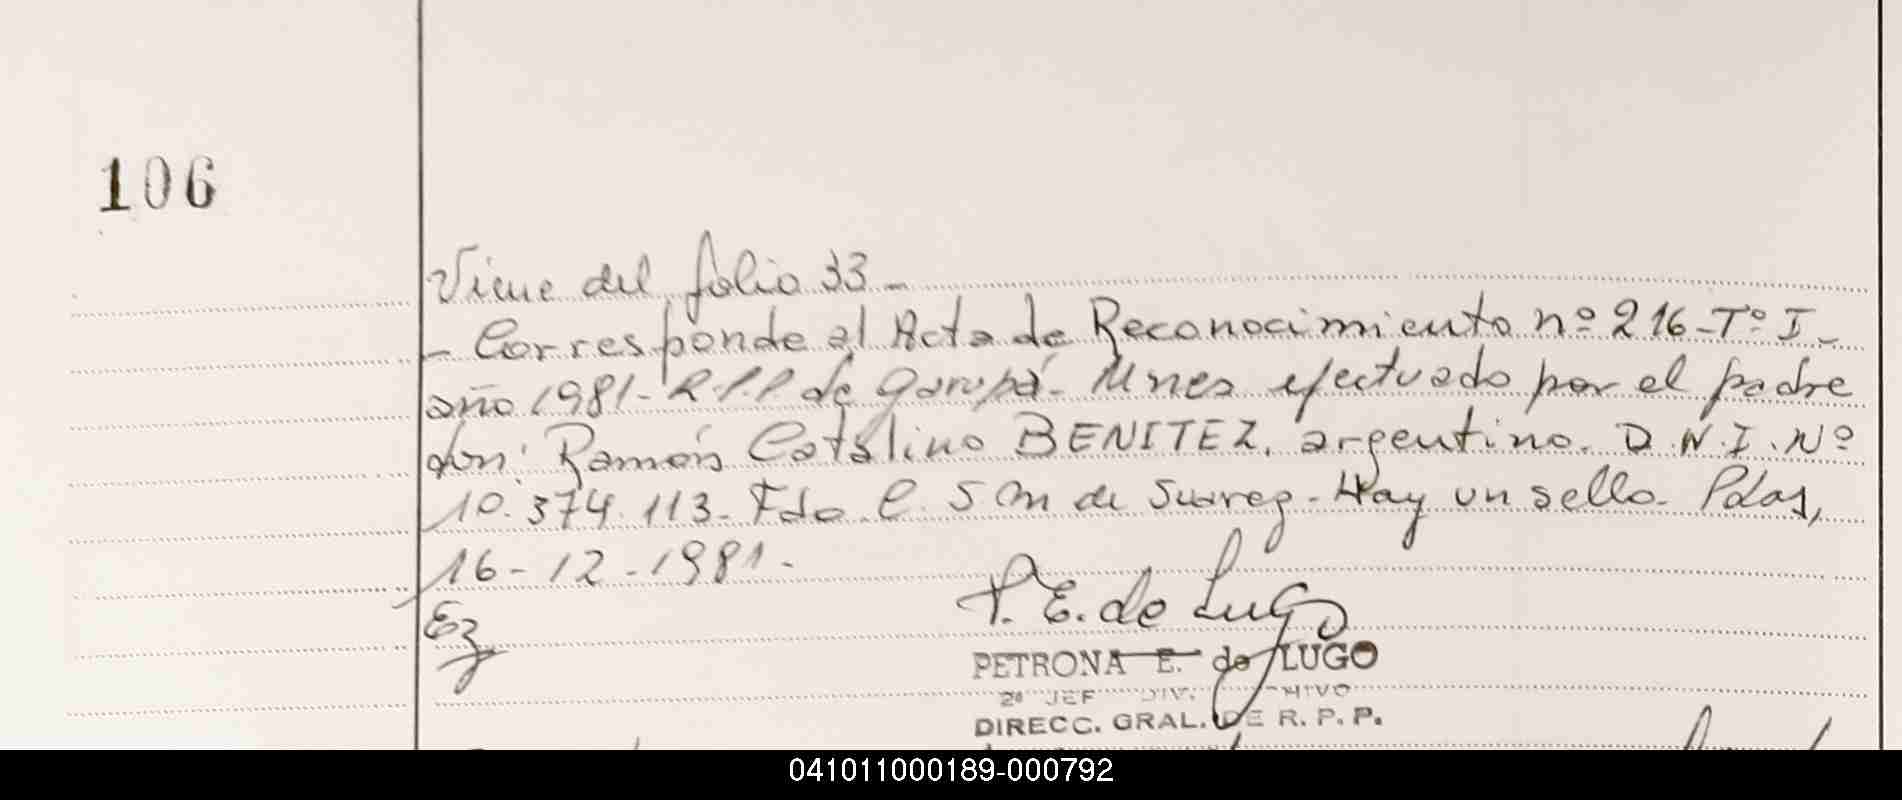 106
Viene del folio 33-
- Corresponde al Acta de Reconocimiento nº 216-Tº I-
año 1981- R.P.P. de Garupá- Mnes efectuado por el padre
don: Ramón Catalino BENITEZ, argentino. D.N.I. Nº
10.374.113- Fdo. C. S M de Suarez- Hay un sello- Pdas,
16-12-1981.-
Ez
P. E. de Lugo
PETRONA E. de LUGO
2º JEF DIV.
DIRECC. GRAL. DE R. P. P.
041011000189-000792